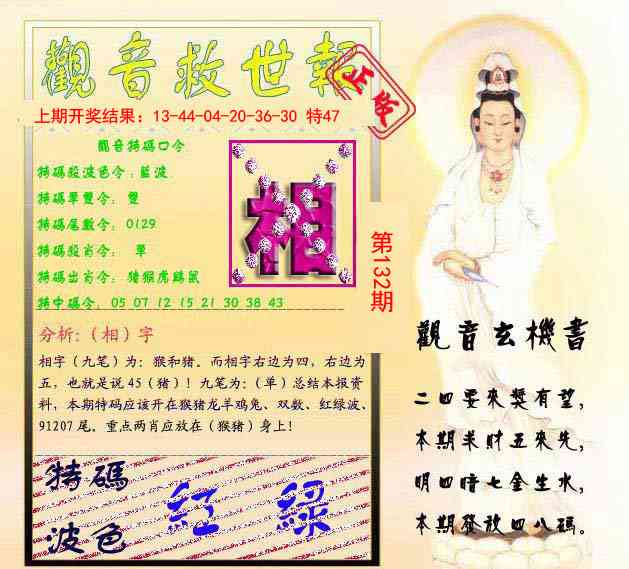 觀音救世報
正版
上期开奖结果：13-44-04-20-36-30 特47
觀音特碼口令
特碼段波色令：藍波
特碼單雙令： 雙
特碼尾數令： 0129
特碼段肖令： 單
特碼出肖令： 豬猴虎鷄鼠
特中碼令： 05 07 12 15 21 30 38 43
相
第132期
分析:（相）字
相字（九笔）为：猴和猪。而相字右边为四，右边为
五，也就是说 45（猪）！九笔为：（单）总结本报资
料，本期特码应该开在猴猪龙羊鸡兔、双数、红绿波、
91207 尾。重点两肖应放在（猴猪）身上！
特碼
波色
紅 綠
觀音玄機書
二四要來獎有望，
本期求財五來先，
明四暗七金生水，
本期發放四八碼。